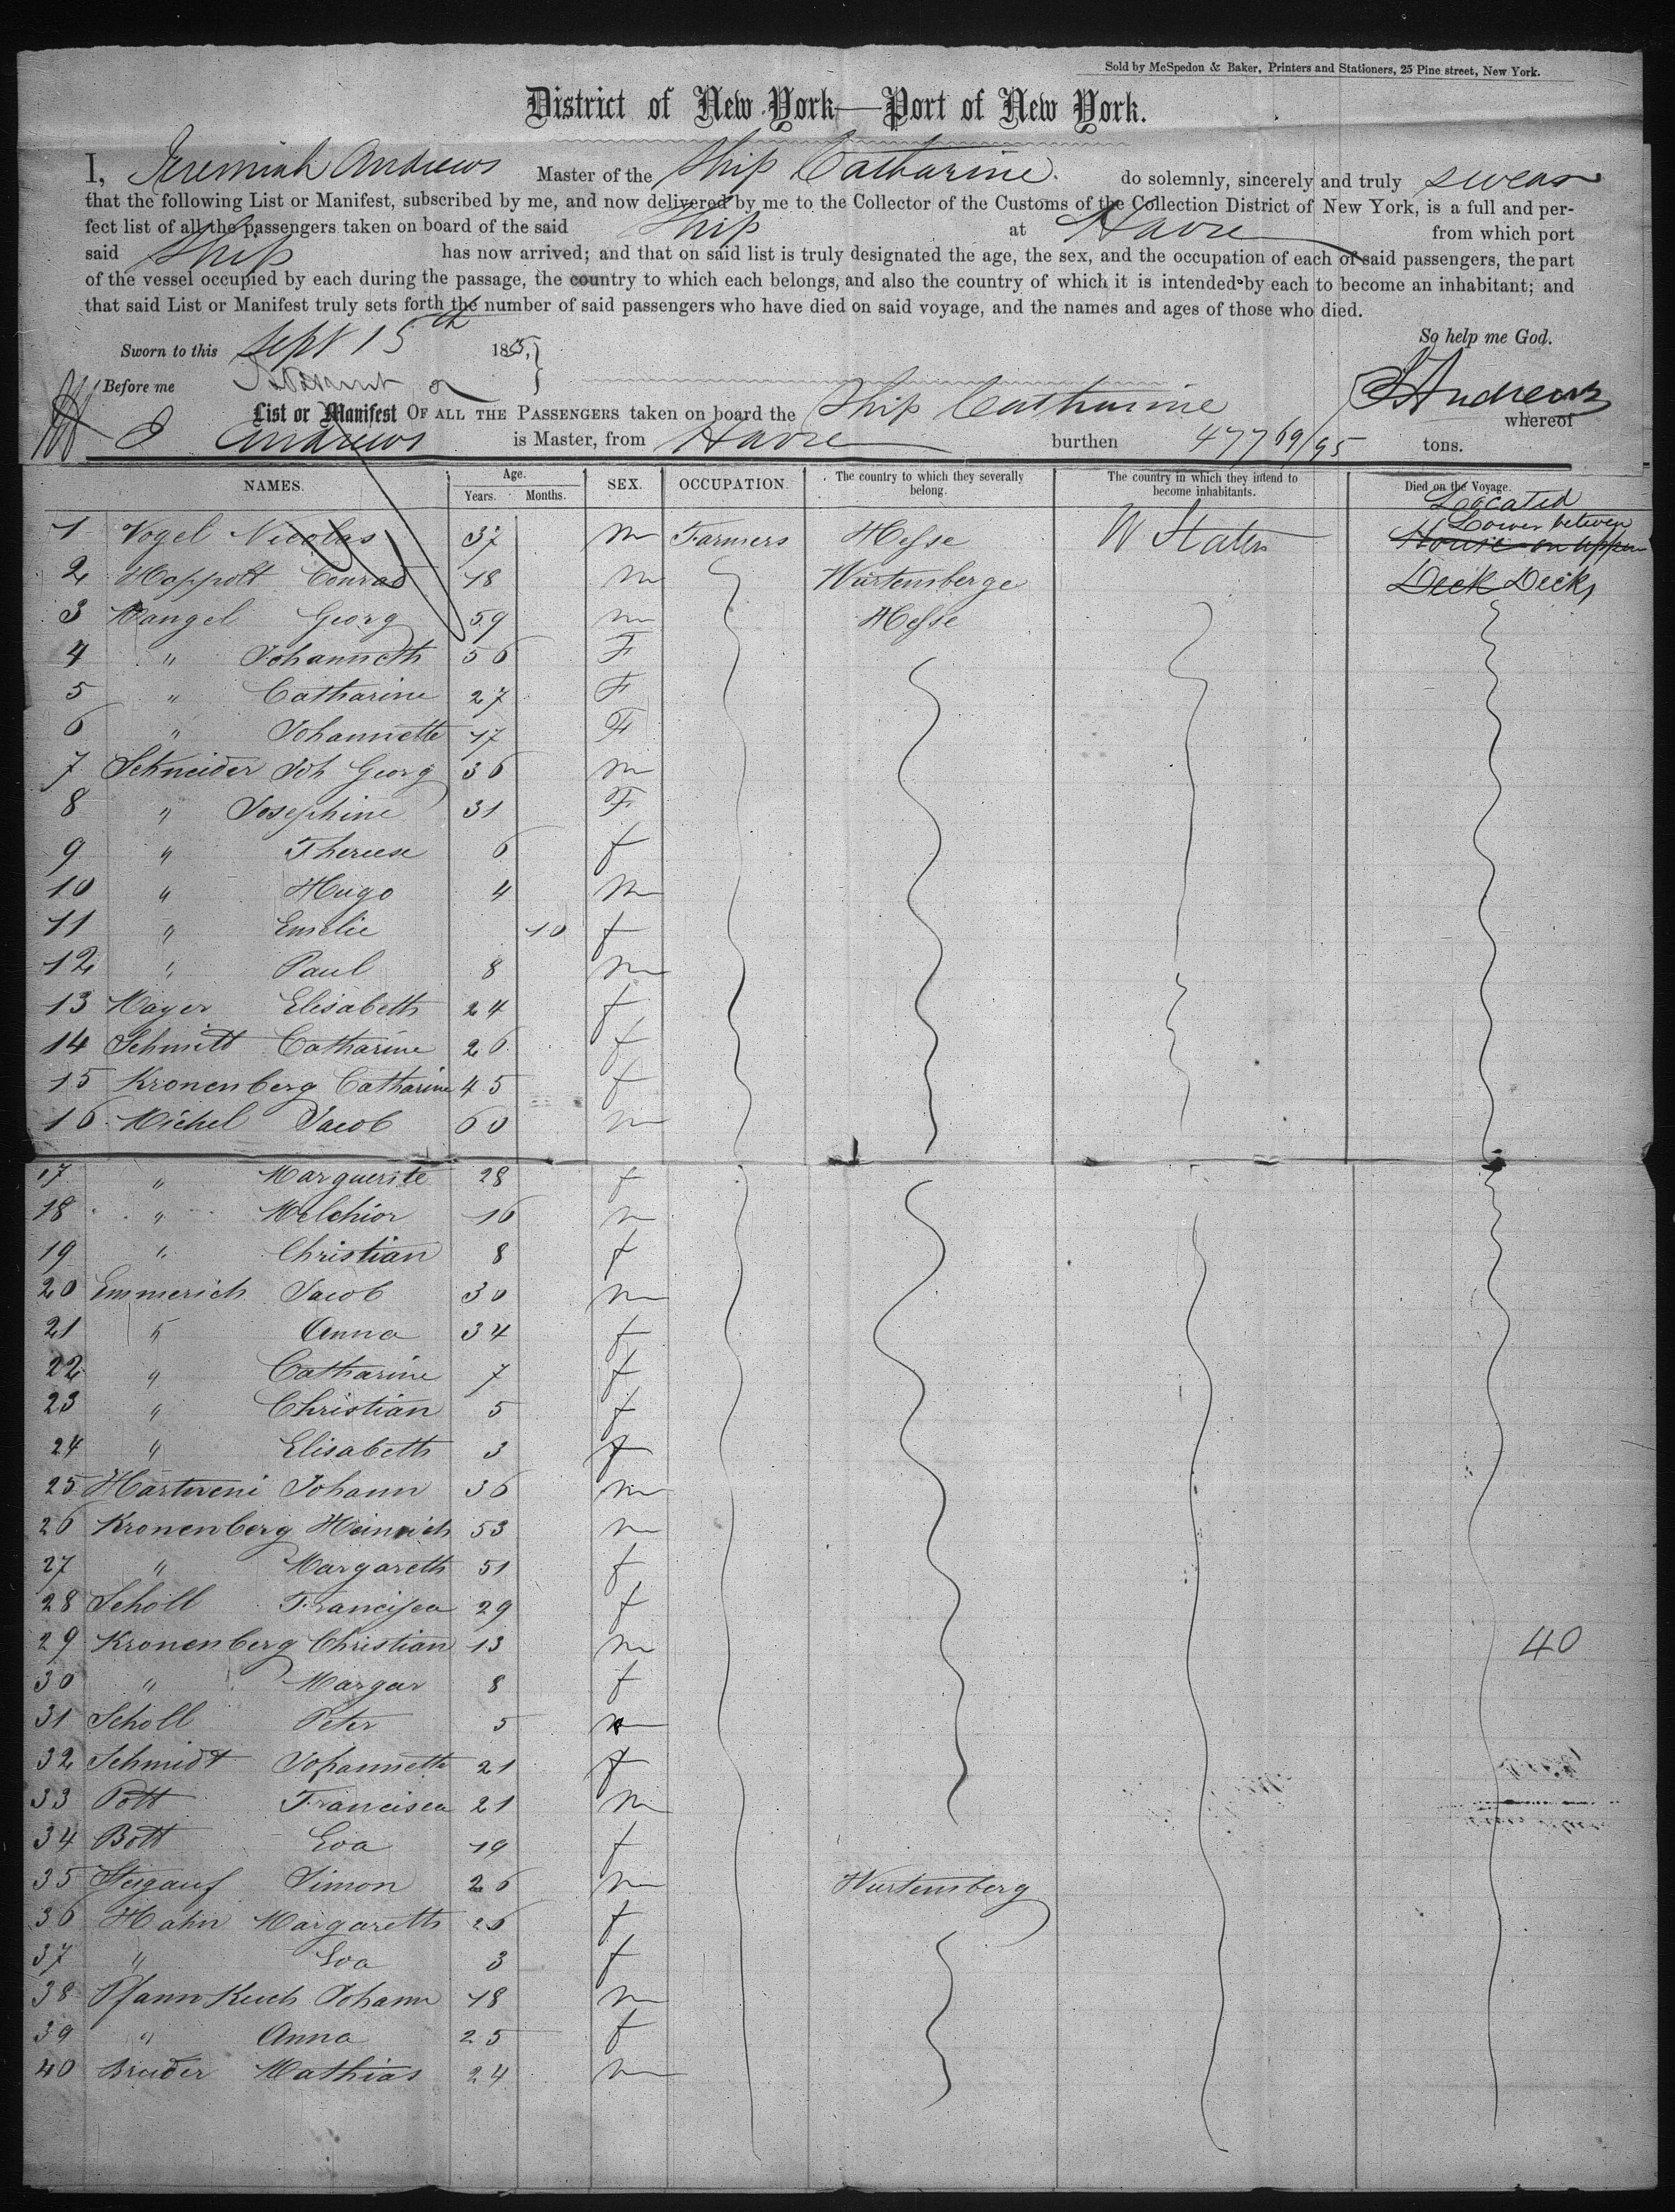 Sold by McSpedon & Baker, Printers and Stationers, 25 Pine street, New York.
District of New York—Port of New York.
I, Jeremiah Andrews Master of the Ship Catharine. do solemnly, sincerely and truly swear
that the following List or Manifest, subscribed by me, and now delivered by me to the Collector of the Customs of the Collection District of New York, is a full and per-
fect list of all the passengers taken on board of the said Ship at Havre from which port
said Ship has now arrived; and that on said list is truly designated the age, the sex, and the occupation of each of said passengers, the part
of the vessel occupied by each during the passage, the country to which each belongs, and also the country of which it is intended by each to become an inhabitant; and
that said List or Manifest truly sets forth the number of said passengers who have died on said voyage, and the names and ages of those who died.
So help me God.
Sworn to this Sept 15th 1855,
Before me
J Andrews
List or Manifest OF ALL THE PASSENGERS taken on board the Ship Catharine whereof
J Andrews is Master, from Havre burthen 477 69/95 tons.
NAMES. Age. Years. Months. SEX. OCCUPATION. The country to which they severally belong. The country in which they intend to become inhabitants. Died on the Voyage.
Located
Lower between
1 Vogel Nicolas 37 m Farmers Hesse U States House on upper
2 Happott Conrad 18 m Würtemberge Deck Decks
3 Mangel Georg 59 m Hesse
4 " Johanneth 56 F
5 " Catharine 27 F
6 " Johannette 17 F
7 Schneider Joh Georg 36 m
8 " Josephine 31 F
9 " Therese 6 f
10 " Hugo 4 m
11 " Emelie 10 f
12 " Paul 8 m
13 Mayer Elisabeth 24 f
14 Schmitt Catharine 26 f
15 Kronenberg Catharine 45 f
16 Michel Jacob 60 m
17 " Marguerite 28 f
18 " Melchior 16 m
19 " Christian 8 f
20 Emmerich Jacob 30 m
21 " Anna 34 f
22 " Catharine 7 f
23 " Christian 5 f
24 " Elisabeth 3 f
25 Hartweni Johann 36 m
26 Kronenberg Heinrich 53 m
27 " Margareth 51 f
28 Scholl Francisca 29 f
29 Kronenberg Christian 13 m 40
30 " Margar 8 f
31 Scholl Peter 5 m
32 Schmidt Johannette 21 f
33 Pott Francisca 21 m
34 Bott Eva 19 f
35 Steigauf Simon 26 m Wurtemberg
36 Hahn Margareth 26 f
37 " Eva 3 f
38 Pfannkuch Johann 18 m
39 " Anna 25 f
40 Bruder Mathias 24 m